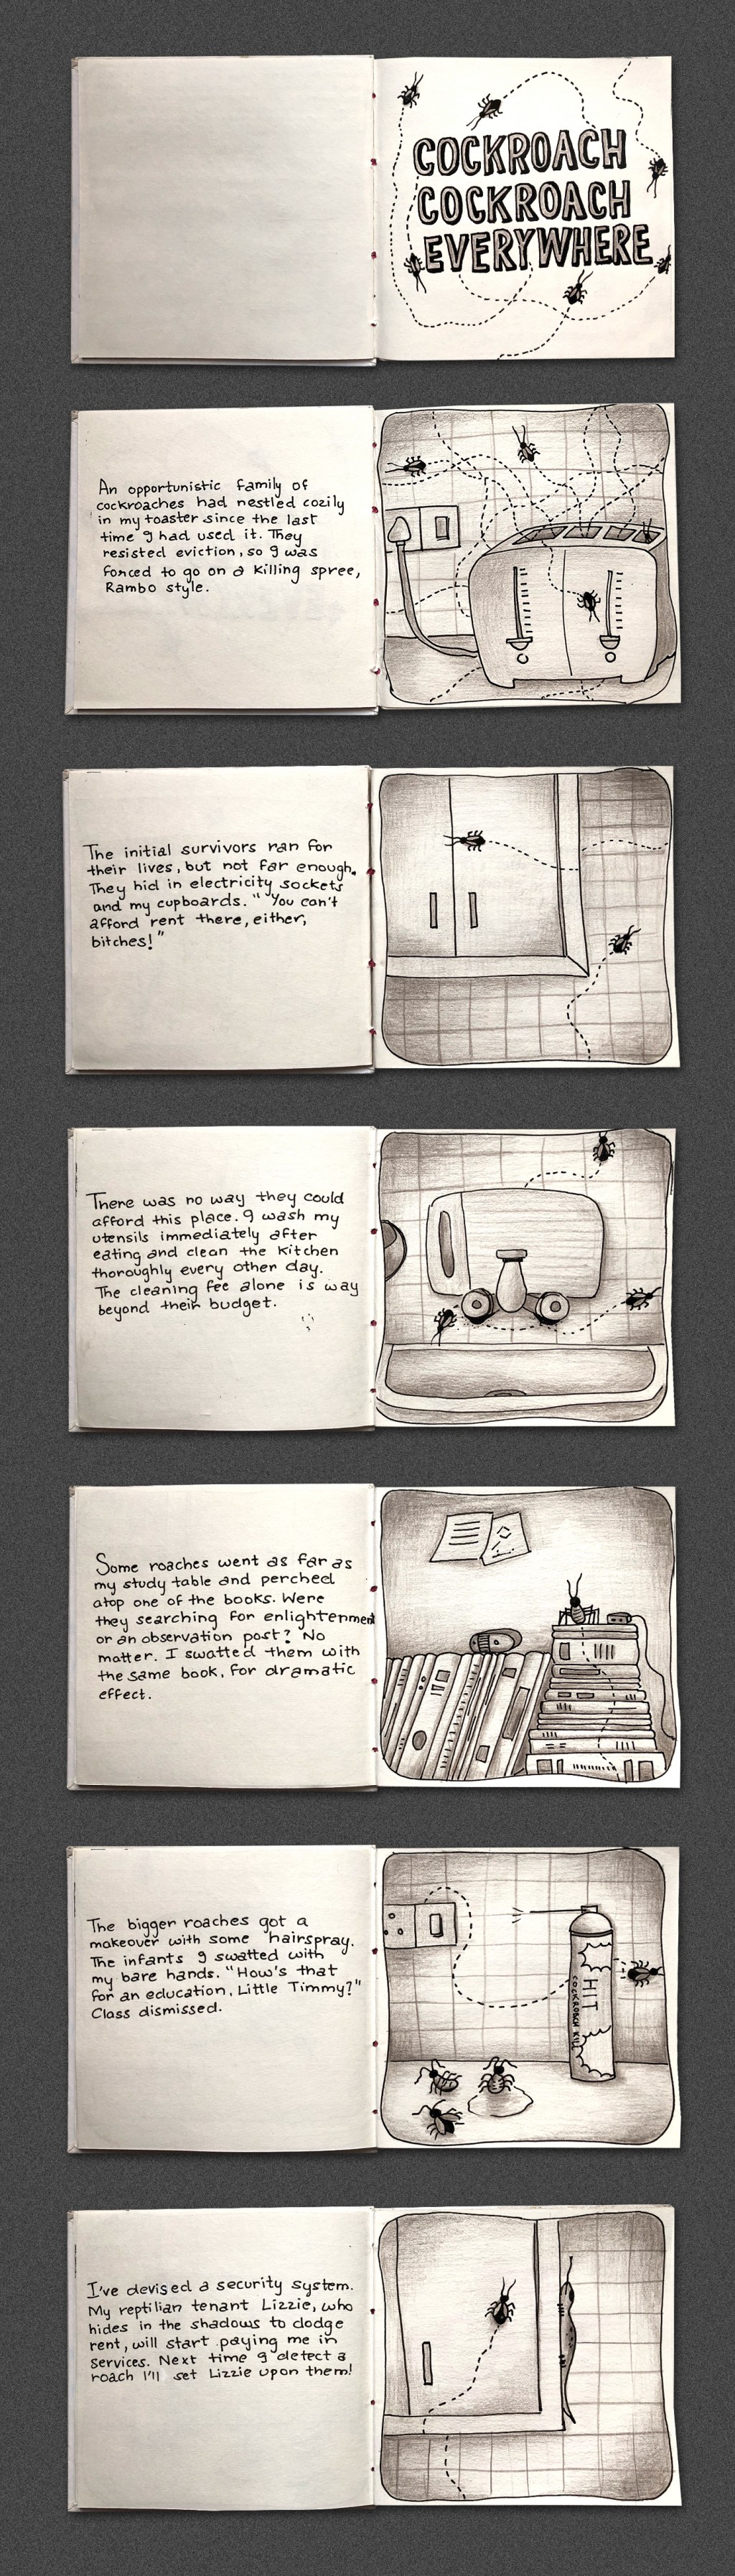 COCKROACH
COCKROACH
EVERYWHERE
An opportunistic family of
cockroaches had nestled cozily
in my toaster since the last
time I had used it. They
resisted eviction, so I was
forced to go on a killing spree,
Rambo style.
The initial survivors ran for
their lives, but not far enough.
They hid in electricity sockets
and my cupboards. "You can't
afford rent there, either,
bitches!"
There was no way they could
afford this place. I wash my
utensils immediately after
eating and clean the kitchen
thoroughly every other day.
The cleaning fee alone is way
beyond their budget.
Some roaches went as far as
my study table and perched
atop one of the books. Were
they searching for enlightenment
or an observation post? No
matter. I swatted them with
the same book, for dramatic
effect.
The bigger roaches got a
makeover with some hairspray.
The infants I swatted with
my bare hands. "How's that
for an education, Little Timmy?"
Class dismissed.
HIT
COCKROACH KILL
I've devised a security system.
My reptilian tenant Lizzie, who
hides in the shadows to dodge
rent, will start paying me in
services. Next time I detect a
roach I'll set Lizzie upon them!